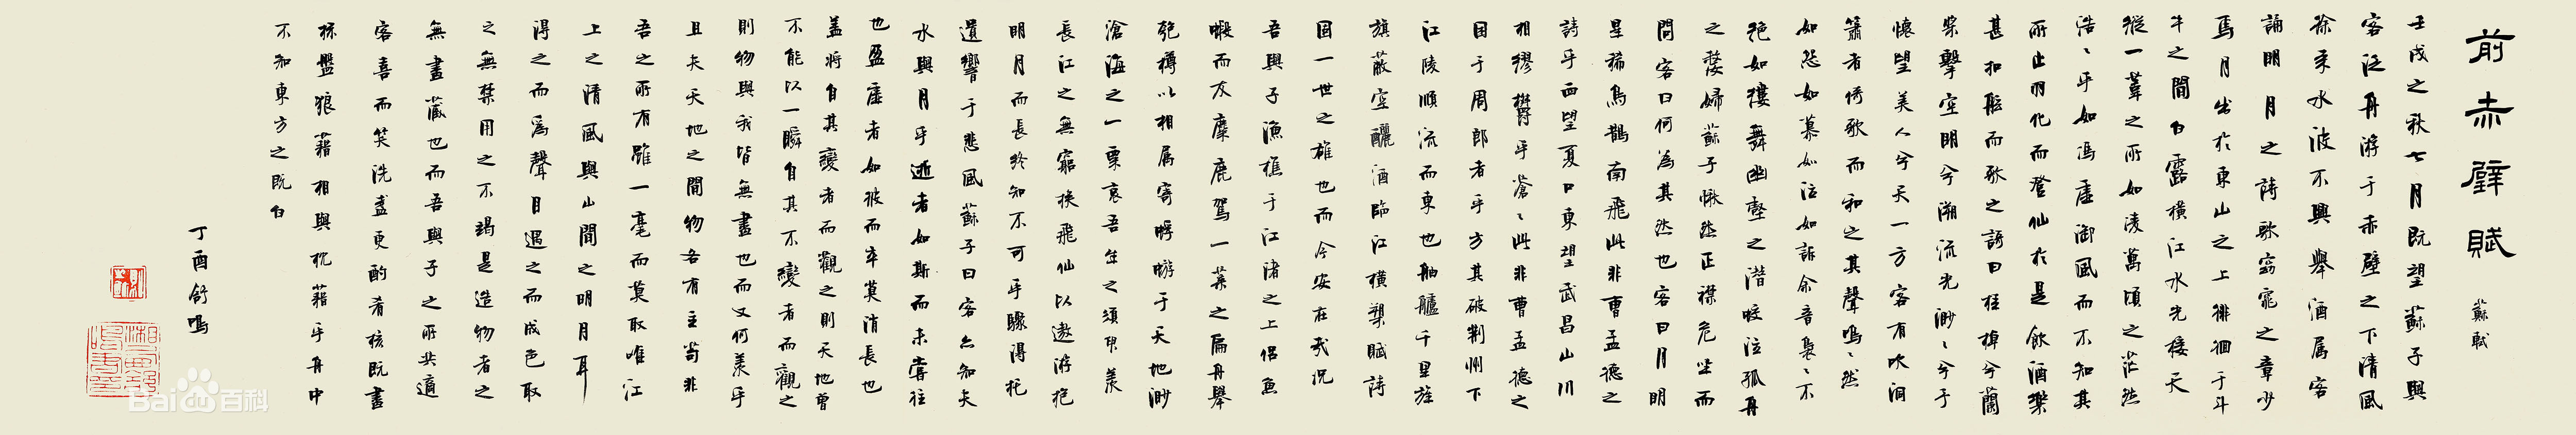 前赤壁賦
蘇軾
壬戌之秋七月既望蘇子與
客泛舟游于赤壁之下清風
徐來水波不興舉酒屬客
誦明月之詩歌窈窕之章少
焉月出於東山之上徘徊于斗
牛之間白露橫江水光接天
縱一葦之所如凌萬頃之茫然
浩〻乎如馮虛御風而不知其
所止羽化而登仙於是飲酒樂
甚扣舷而歌之謌曰桂棹兮蘭
槳擊空明兮溯流光渺〻兮于
懷望美人兮天一方客有吹洞
簫者倚歌而和之其聲嗚〻然
如怨如慕如泣如訴余音裊〻不
絕如縷舞幽壑之潛蛟泣孤舟
之嫠婦蘇子愀然正襟危坐而
問客曰何為其然也客曰月明
星稀烏鵲南飛此非曹孟德之
詩乎西望夏口東望武昌山川
相繆鬱乎蒼〻此非曹孟德之
困于周郎者乎方其破荆州下
江陵順流而東也舳艫千里旌
旗蔽空釃酒臨江橫槊賦詩
固一世之雄也而今安在哉況
吾與子漁樵于江渚之上侶魚
蝦而友麋鹿駕一葉之扁舟舉
匏樽以相屬寄蜉蝣于天地渺
滄海之一粟哀吾生之須臾羨
長江之無窮挾飛仙以遨游抱
明月而長終知不可乎驟得托
遺響于悲風蘇子曰客亦知夫
水與月乎逝者如斯而未嘗往
也盈虛者如彼而卒莫消長也
蓋將自其變者而觀之則天地曾
不能以一瞬自其不變者而觀之
則物與我皆無盡也而又何羨乎
且夫天地之間物各有主苟非
吾之所有雖一毫而莫取唯江
上之清風與山間之明月耳
得之而爲聲目遇之而成色取
之無禁用之不竭是造物者之
無盡藏也而吾與子之所共適
客喜而笑洗盞更酌肴核既盡
杯盤狼藉相與枕藉乎舟中
不知東方之既白
丁酉舒鳴
Baidu百科